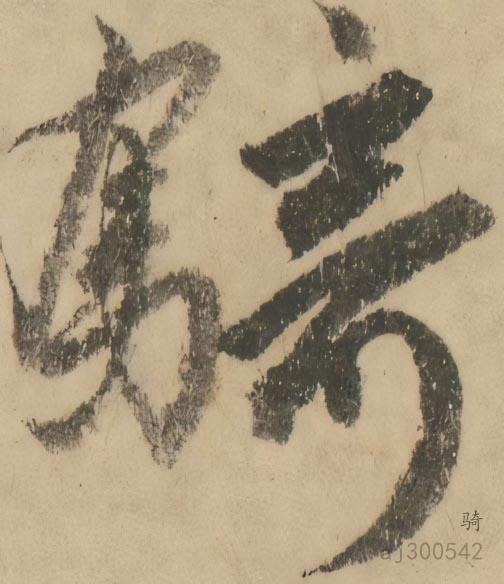 騎
骑
aj300542